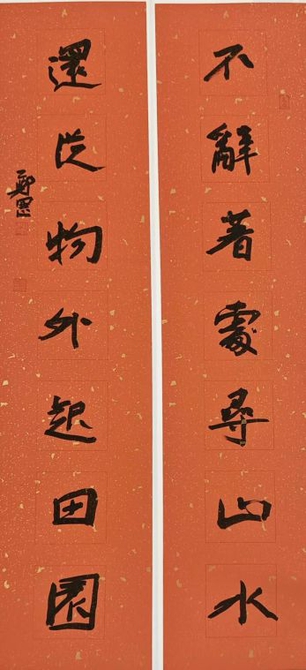 不辭著處尋山水
還從物外起田園